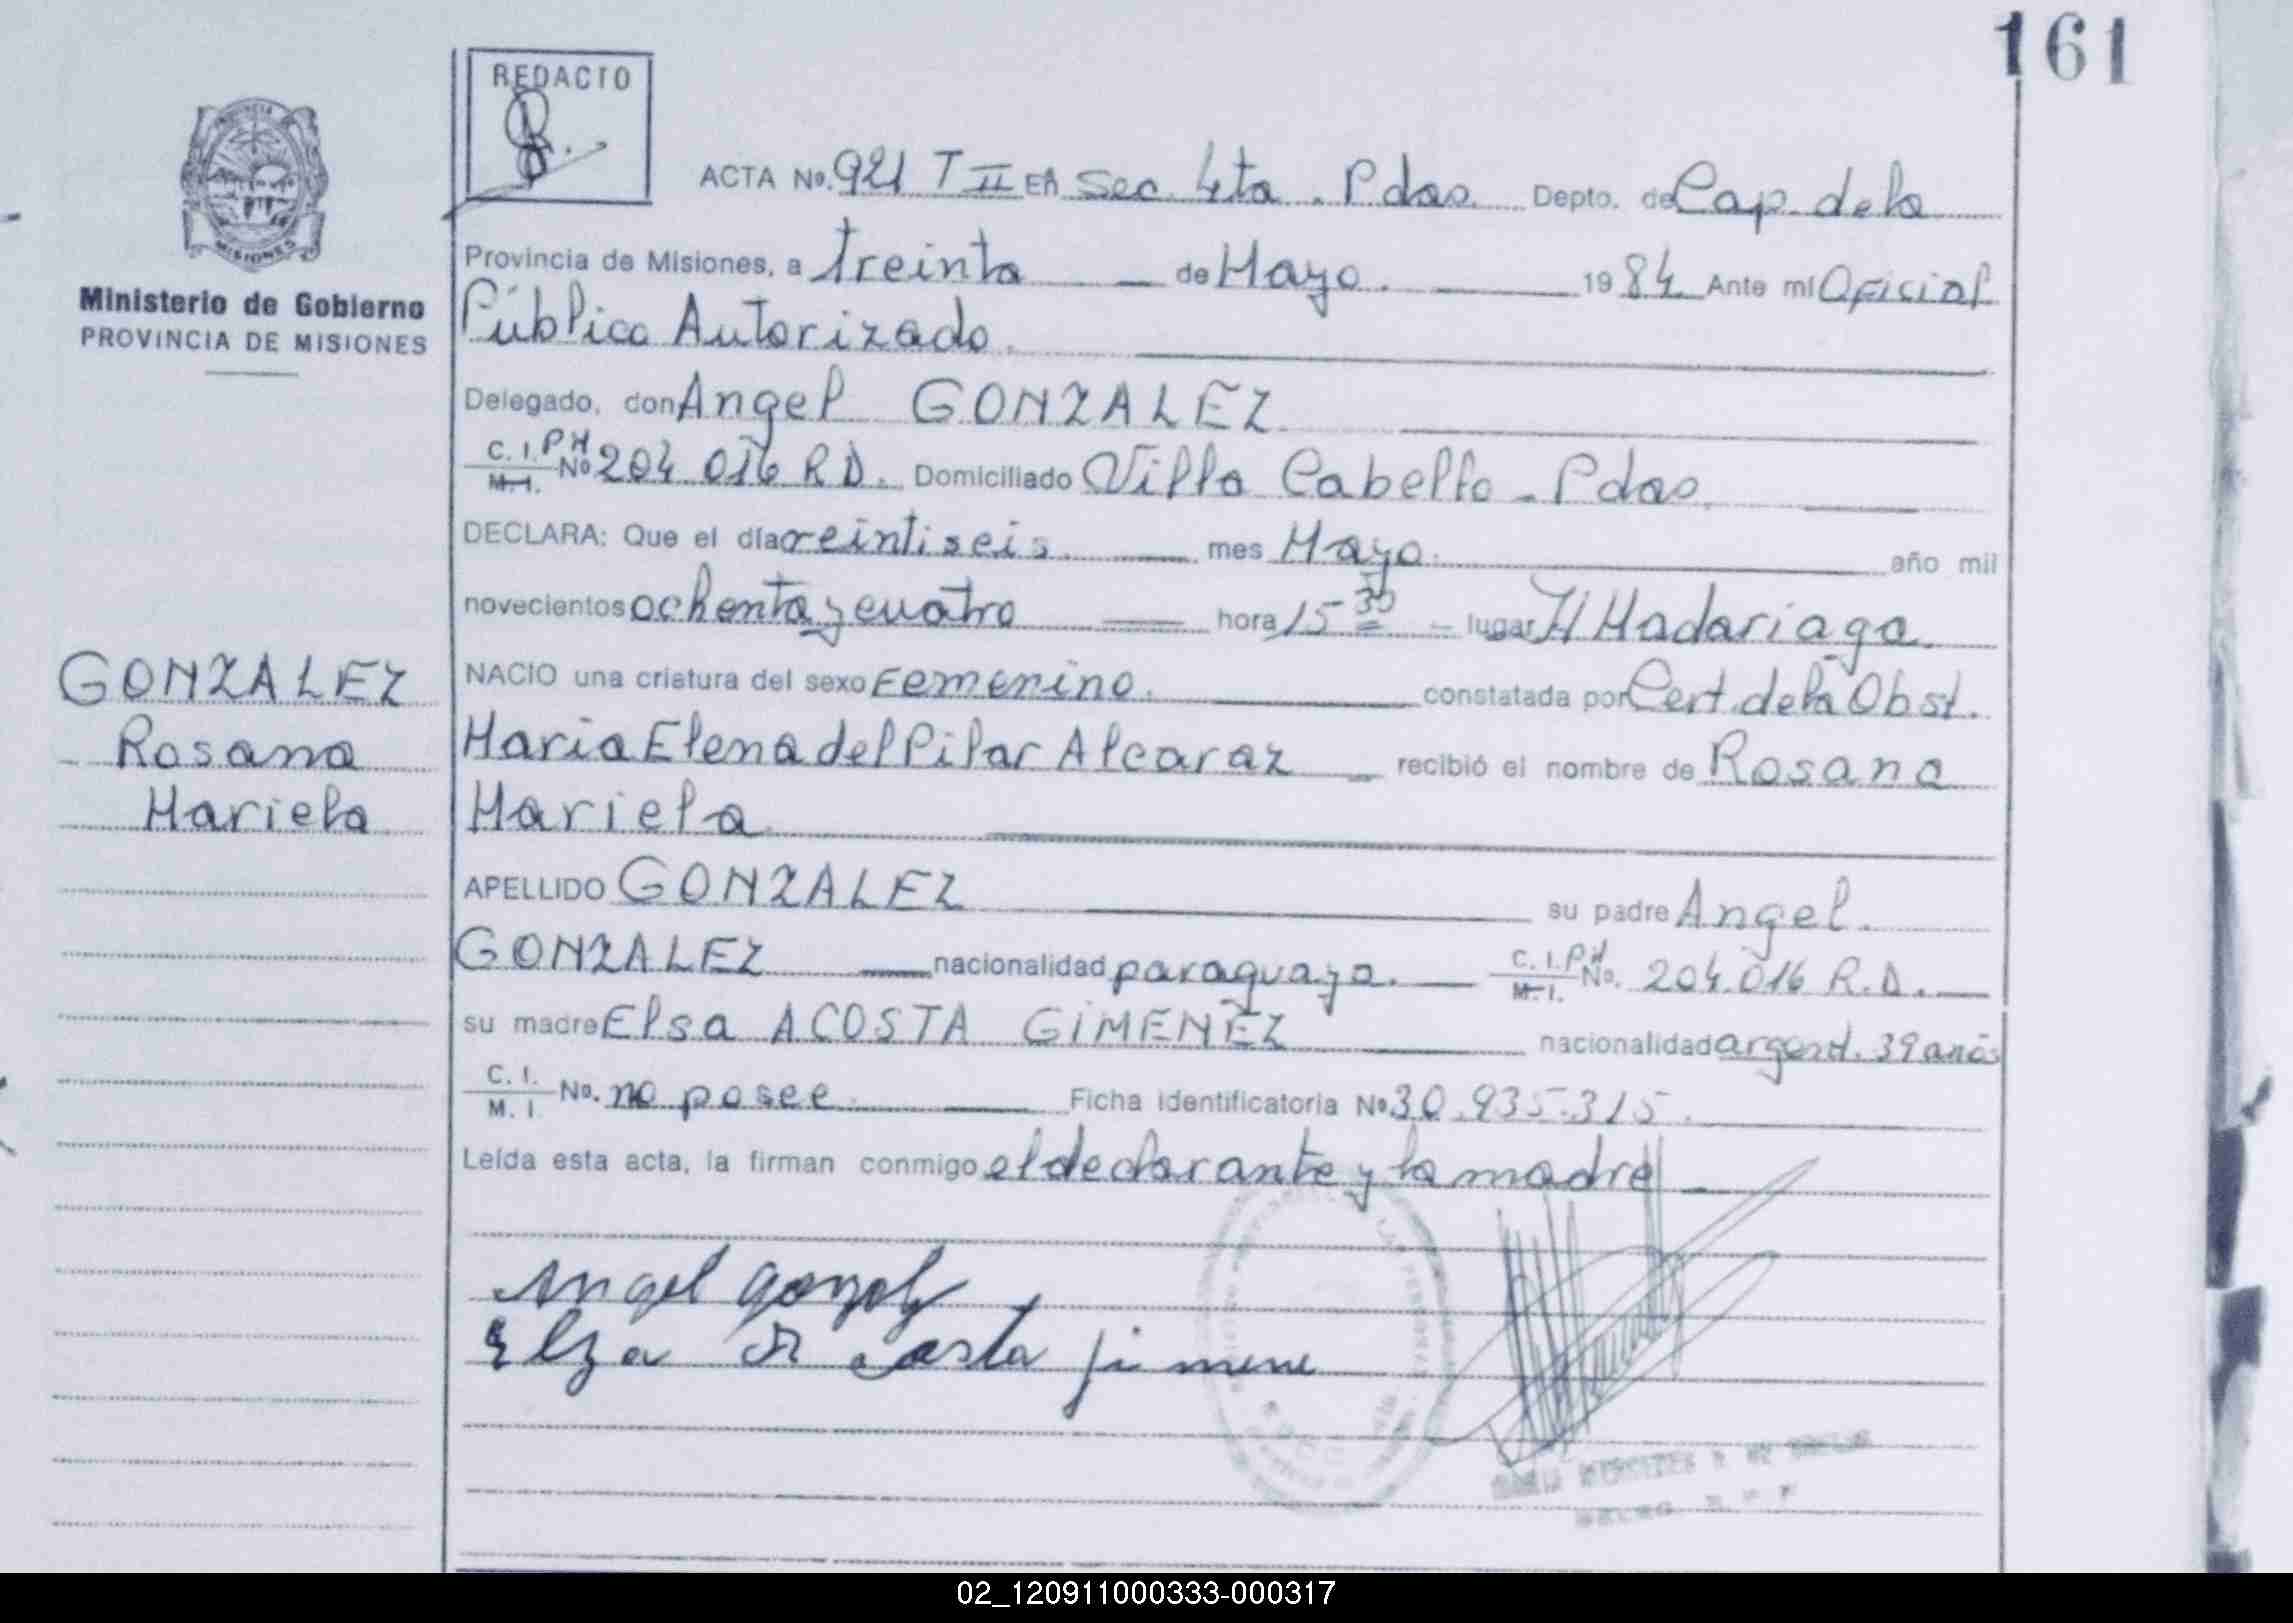 161
REDACTO
ACTA No. 921 T II EN Sec. 4ta. Pdas. Depto. de Cap. de la
Provincia de Misiones, a treinta de Mayo. 1984 Ante mí Oficial
Público Autorizado.
MISIONES
Ministerio de Gobierno
PROVINCIA DE MISIONES
Delegado, don Angel GONZALEZ
C. I. PN
M. I. No 204.016 R D. Domiciliado Villa Cabello - Pdas.
DECLARA: Que el día veintiseis mes Mayo. año mil
novecientos ochenta y cuatro hora 15 30 lugar H Madariaga
NACIO una criatura del sexo Femenino. constatada por Cert. de la Obst.
Maria Elena del Pilar Alcaraz recibió el nombre de Rosana
Mariela
GONZALEZ
Rosana
Mariela
APELLIDO GONZALEZ su padre Angel.
GONZALEZ nacionalidad paraguaya. C. I. PN
M. I. No. 204.016 R.D.
su madre Elsa ACOSTA GIMENEZ nacionalidad argent. 39 años
C. I.
M. I. No. no posee Ficha identificatoria No 30.935.315.
Leída esta acta, la firman conmigo el declarante y la madre
Angel Gonzalez
02_120911000333-000317